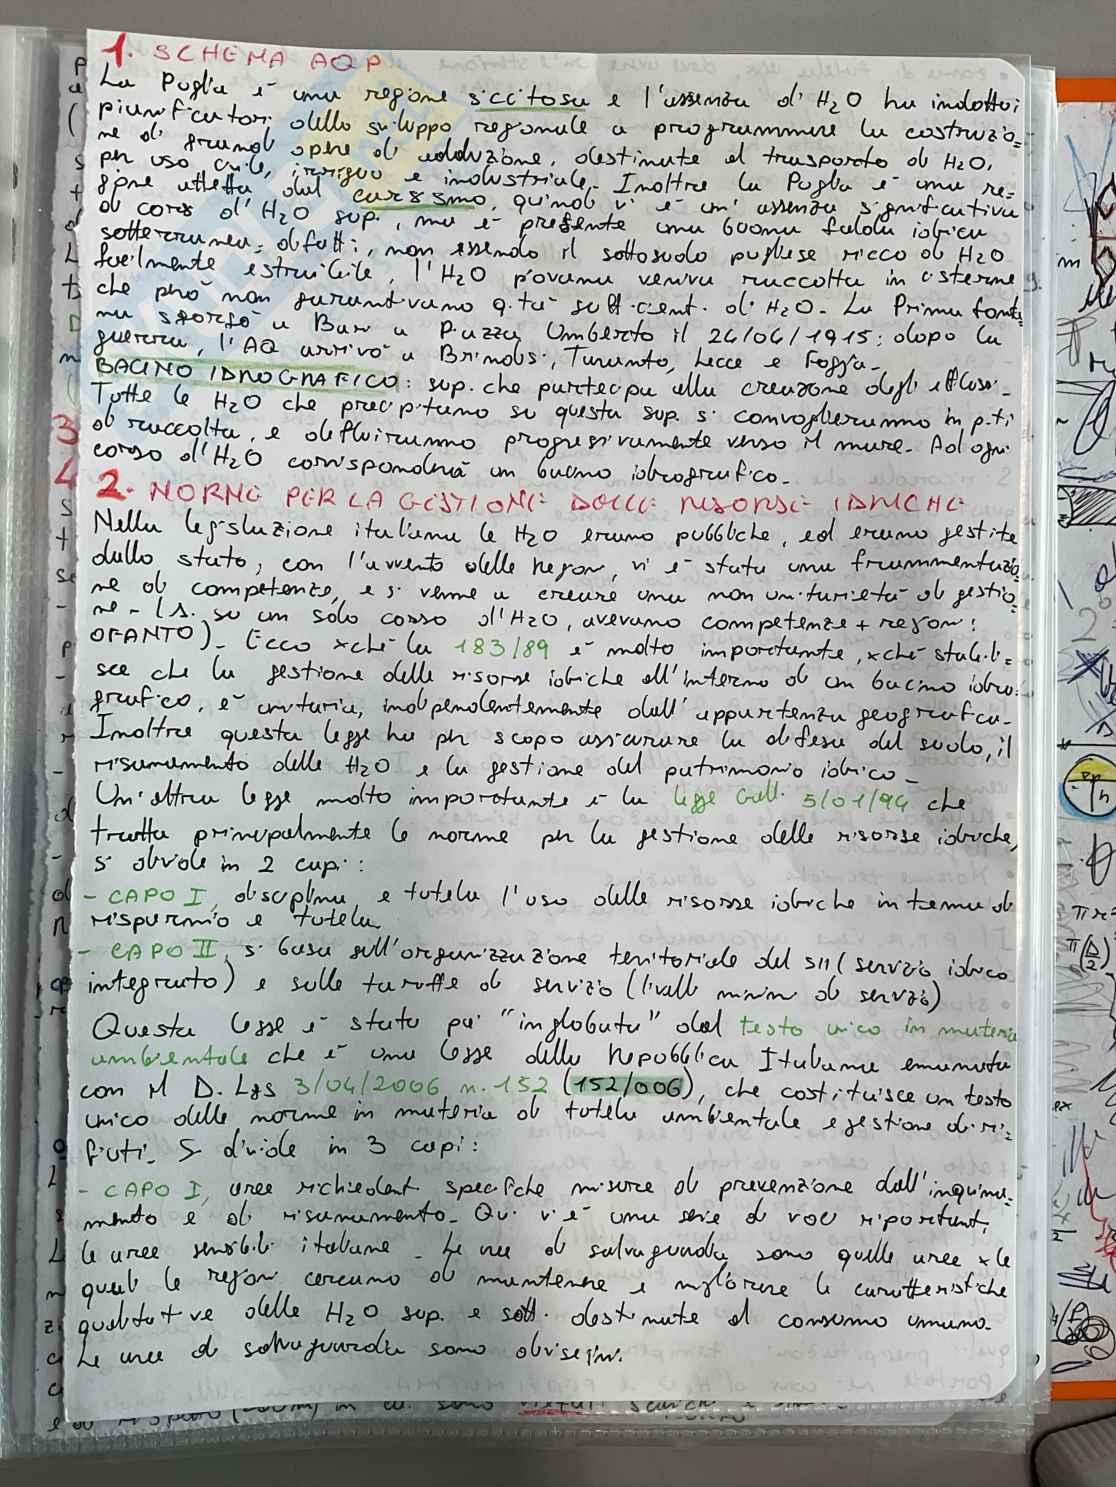 1. SCHEMA AQP
La Puglia è una regione siccitosa e l'assenza di H2O ha indotto i
pianificatori dello sviluppo regionale a programmare la costruzio=
ne di grandi opere di adduzione, destinate al trasporto di H2O,
per uso civile, irriguo e industriale. Inoltre la Puglia è una re=
gione affetta dal carsismo, quindi vi è un' assenza significativa
di corsi d'H2O sup., ma è presente una buona falda idrica
sotterranea: difatti, non essendo il sottosuolo pugliese ricco di H2O
facilmente estraibile, l'H2O piovana veniva raccolta in cisterne
che però non garantivano q.tà sufficienti di H2O. La Prima fonta=
na sgorgò a Bari a Piazza Umberto il 24/04/1915; dopo la
guerra, l'AQ arrivò a Brindisi, Taranto, Lecce e Foggia.
BACINO IDROGRAFICO: sup. che partecipa alla creazione degli efflussi.
Tutte le H2O che precipitano su questa sup. si convoglieranno in p.ti
di raccolta, e defluiranno progressivamente verso il mare. Ad ogni
corso d'H2O corrisponderà un bacino idrografico.
2. NORME PER LA GESTIONE DELLE RISORSE IDRICHE
Nella legislazione italiana le H2O erano pubbliche, ed erano gestite
dallo stato; con l'avvento delle Regioni, vi è stata una frammentazio=
ne di competenze, e si venne a creare una non unitarietà di gestio=
ne - (es. su un solo corso d'H2O, avevamo competenze + regioni:
OFANTO). Ecco xchè la 183/89 è molto importante, xchè stabili=
sce che la gestione delle risorse idriche all'interno di un bacino idro=
grafico, è unitaria, indipendentemente dall'appartenenza geografica.
Inoltre questa legge ha per scopo assicurare la difesa del suolo, il
risanamento delle H2O e la gestione del patrimonio idrico.
Un'altra legge molto importante è la legge Galli 5/01/94 che
tratta principalmente le norme per la gestione delle risorse idriche,
si divide in 2 capi:
- CAPO I, disciplina e tutela l'uso delle risorse idriche in tema di
risparmio e tutela.
- CAPO II, si basa sull'organizzazione territoriale del SII (servizio idrico
integrato) e sulle tariffe di servizio (livelli minimi di servizio)
Questa legge è stata poi "inglobata" dal testo unico in materia
ambientale che è una legge della Repubblica Italiana emanata
con il D. Lgs 3/04/2006 n. 152 (152/006), che costituisce un testo
unico delle norme in materia di tutela ambientale e gestione di ri=
fiuti. Si divide in 3 capi:
- CAPO I, aree richiedenti specifiche misure di prevenzione dall'inquina=
mento e di risanamento. Qui vi è una serie di voci riportanti
le aree sensibili italiane. Le aree di salvaguardia sono quelle aree x le
quali le regioni cercano di mantenere e migliorare le caratteristiche
qualitative delle H2O sup. e sott. destinate al consumo umano.
Le aree di salvaguardia sono divise in: